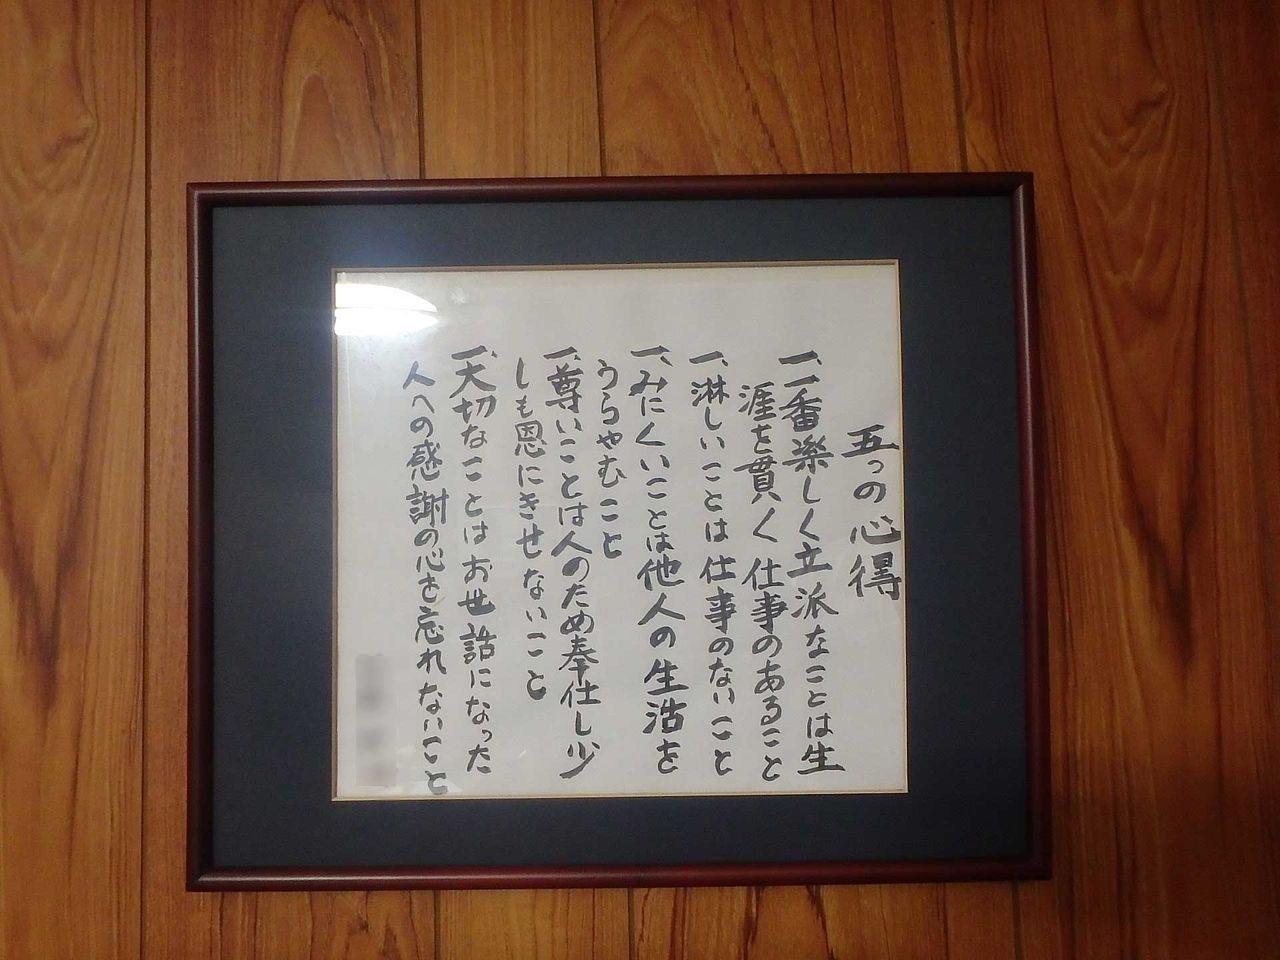 五つの心得
一、一番楽しく立派なことは生
涯を貫く仕事のあること
一、淋しいことは仕事のないこと
一、みにくいことは他人の生活を
うらやむこと
一、尊いことは人のため奉仕し少
しも恩にきせないこと
一、大切なことはお世話になった
人への感謝の心を忘れないこと